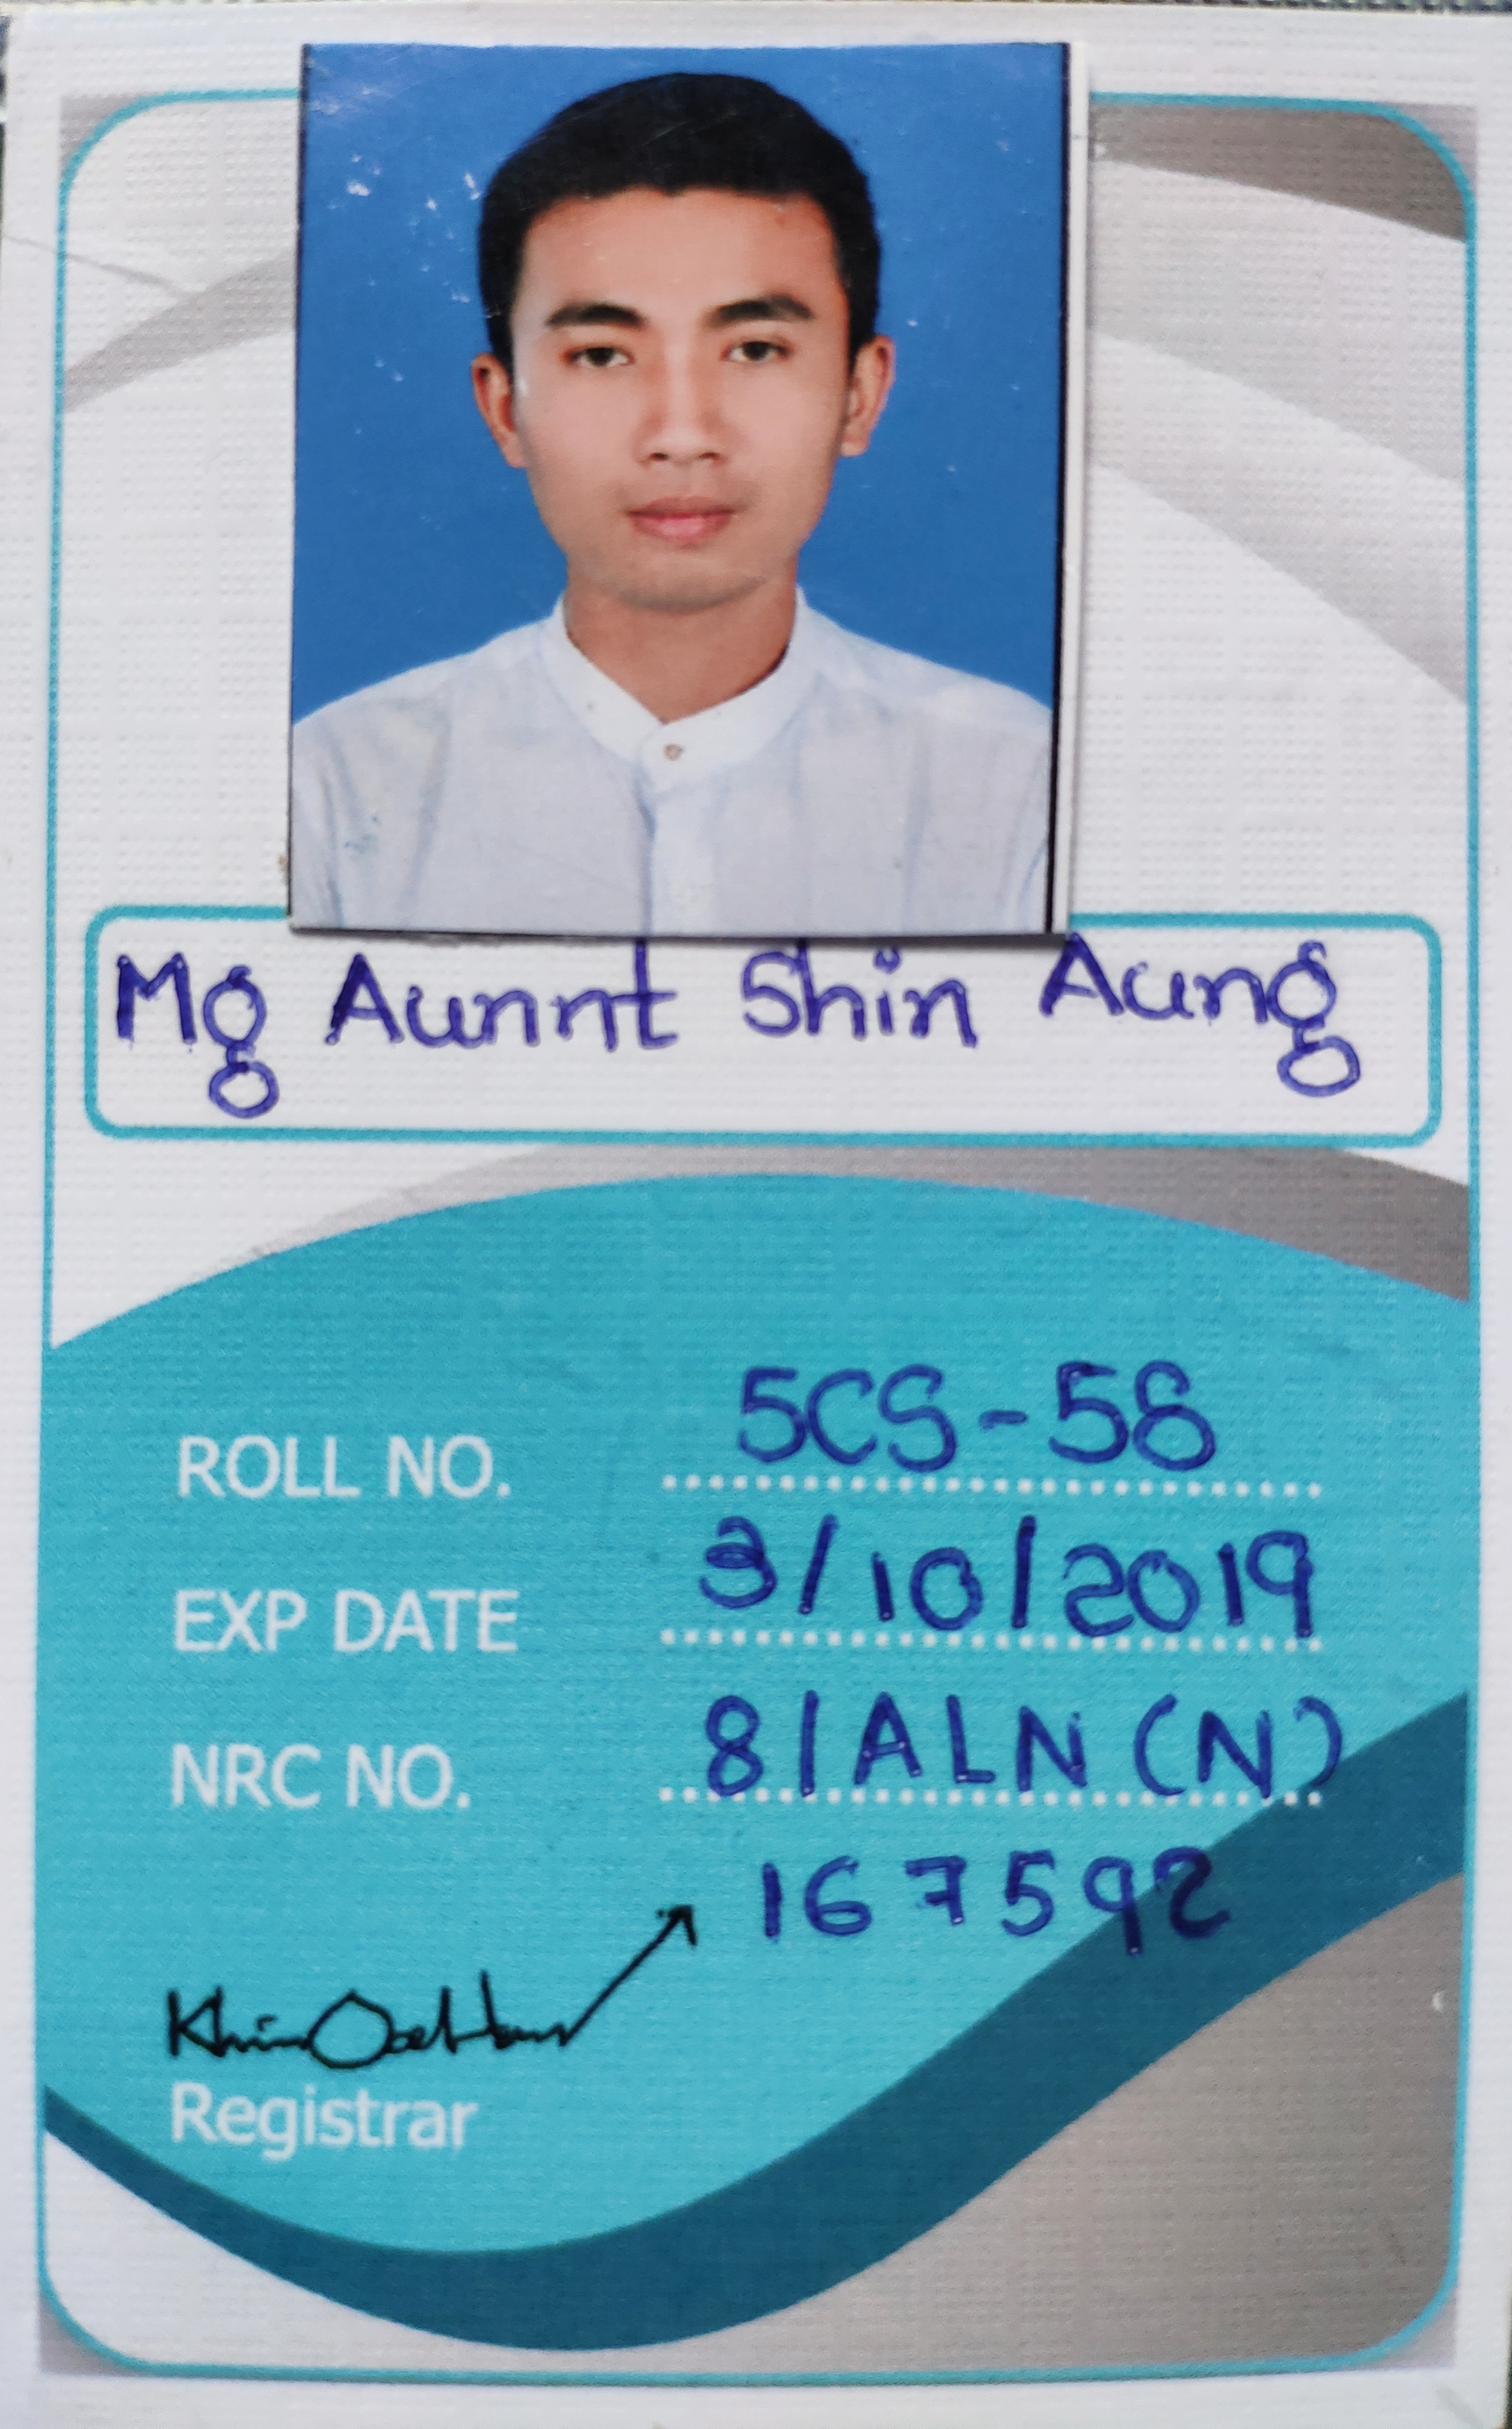 Mg Aunnt Shin Aung
ROLL NO. 5CS-58
EXP DATE 3/10/2019
NRC NO. 8/ALN(N)
167592
Registrar